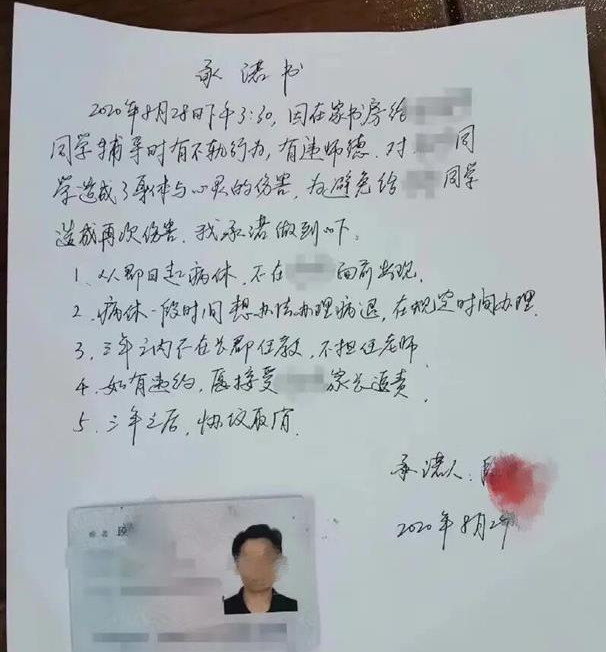 承诺书
2020年8月28日下午3:30，因在家书房给
同学辅导时有不轨行为，有违师德．对 同
学造成了身体与心灵的伤害，为避免给 同学
造成再次伤害．我承诺做到以下：
1、从即日起病休，不在 面前出现．
2、病休一段时间想办法办理病退，在规定时间办理．
3、三年之内不在长郡任教，不担任老师．
4、如有违约，愿接受 家长追责．
5、三年之后，协议取消．
承诺人：
2020年8月2
姓名 段